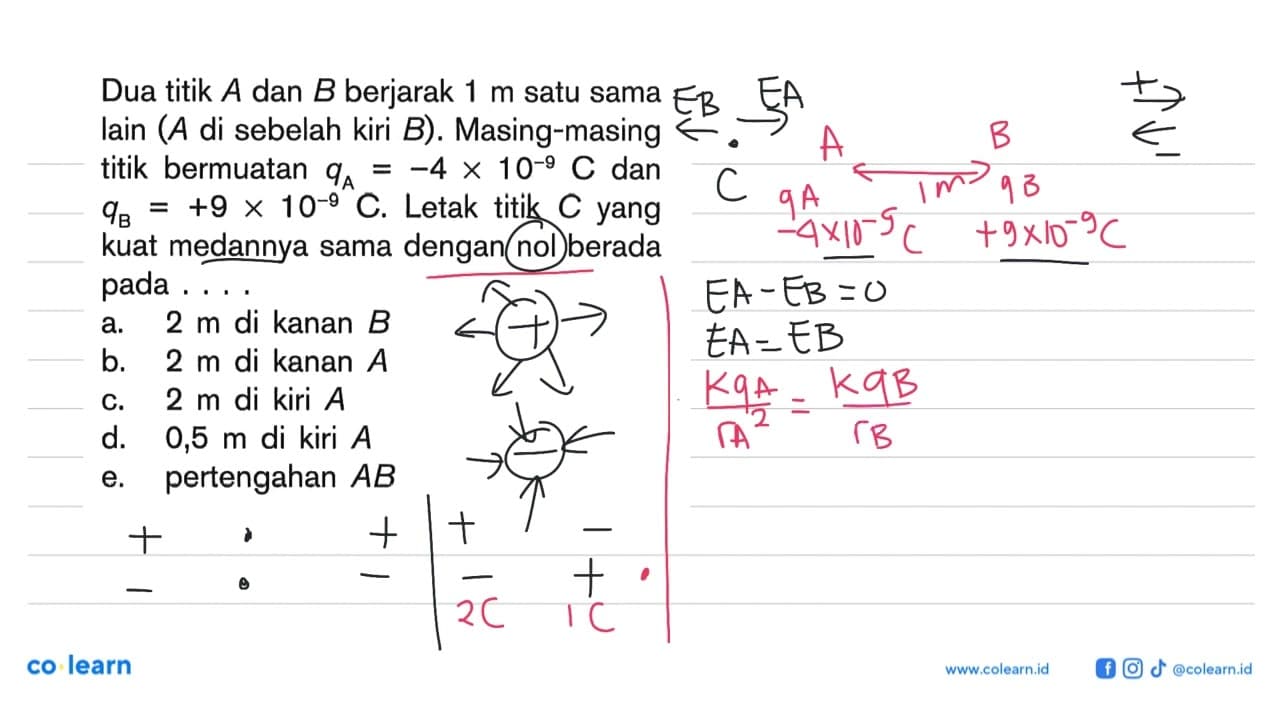 Dua titik A dan B berjarak 1 m satu sama
lain (A di sebelah kiri B). Masing-masing
titik bermuatan qA = −4 × 10⁻⁹ C dan
qB = +9 × 10⁻⁹ C. Letak titik C yang
kuat medannya sama dengan nol berada
pada . . . .
a. 2 m di kanan B
b. 2 m di kanan A
c. 2 m di kiri A
d. 0,5 m di kiri A
e. pertengahan AB
+ . + + −
− . − − + .
2C 1C
+
−
EB EA
+
−
C
A B
1m
qA qB
−4×10⁻⁹C +9×10⁻⁹C
EA − EB = 0
EA = EB
KqA/rA² = kqB/rB
co·learn
www.colearn.id
@colearn.id